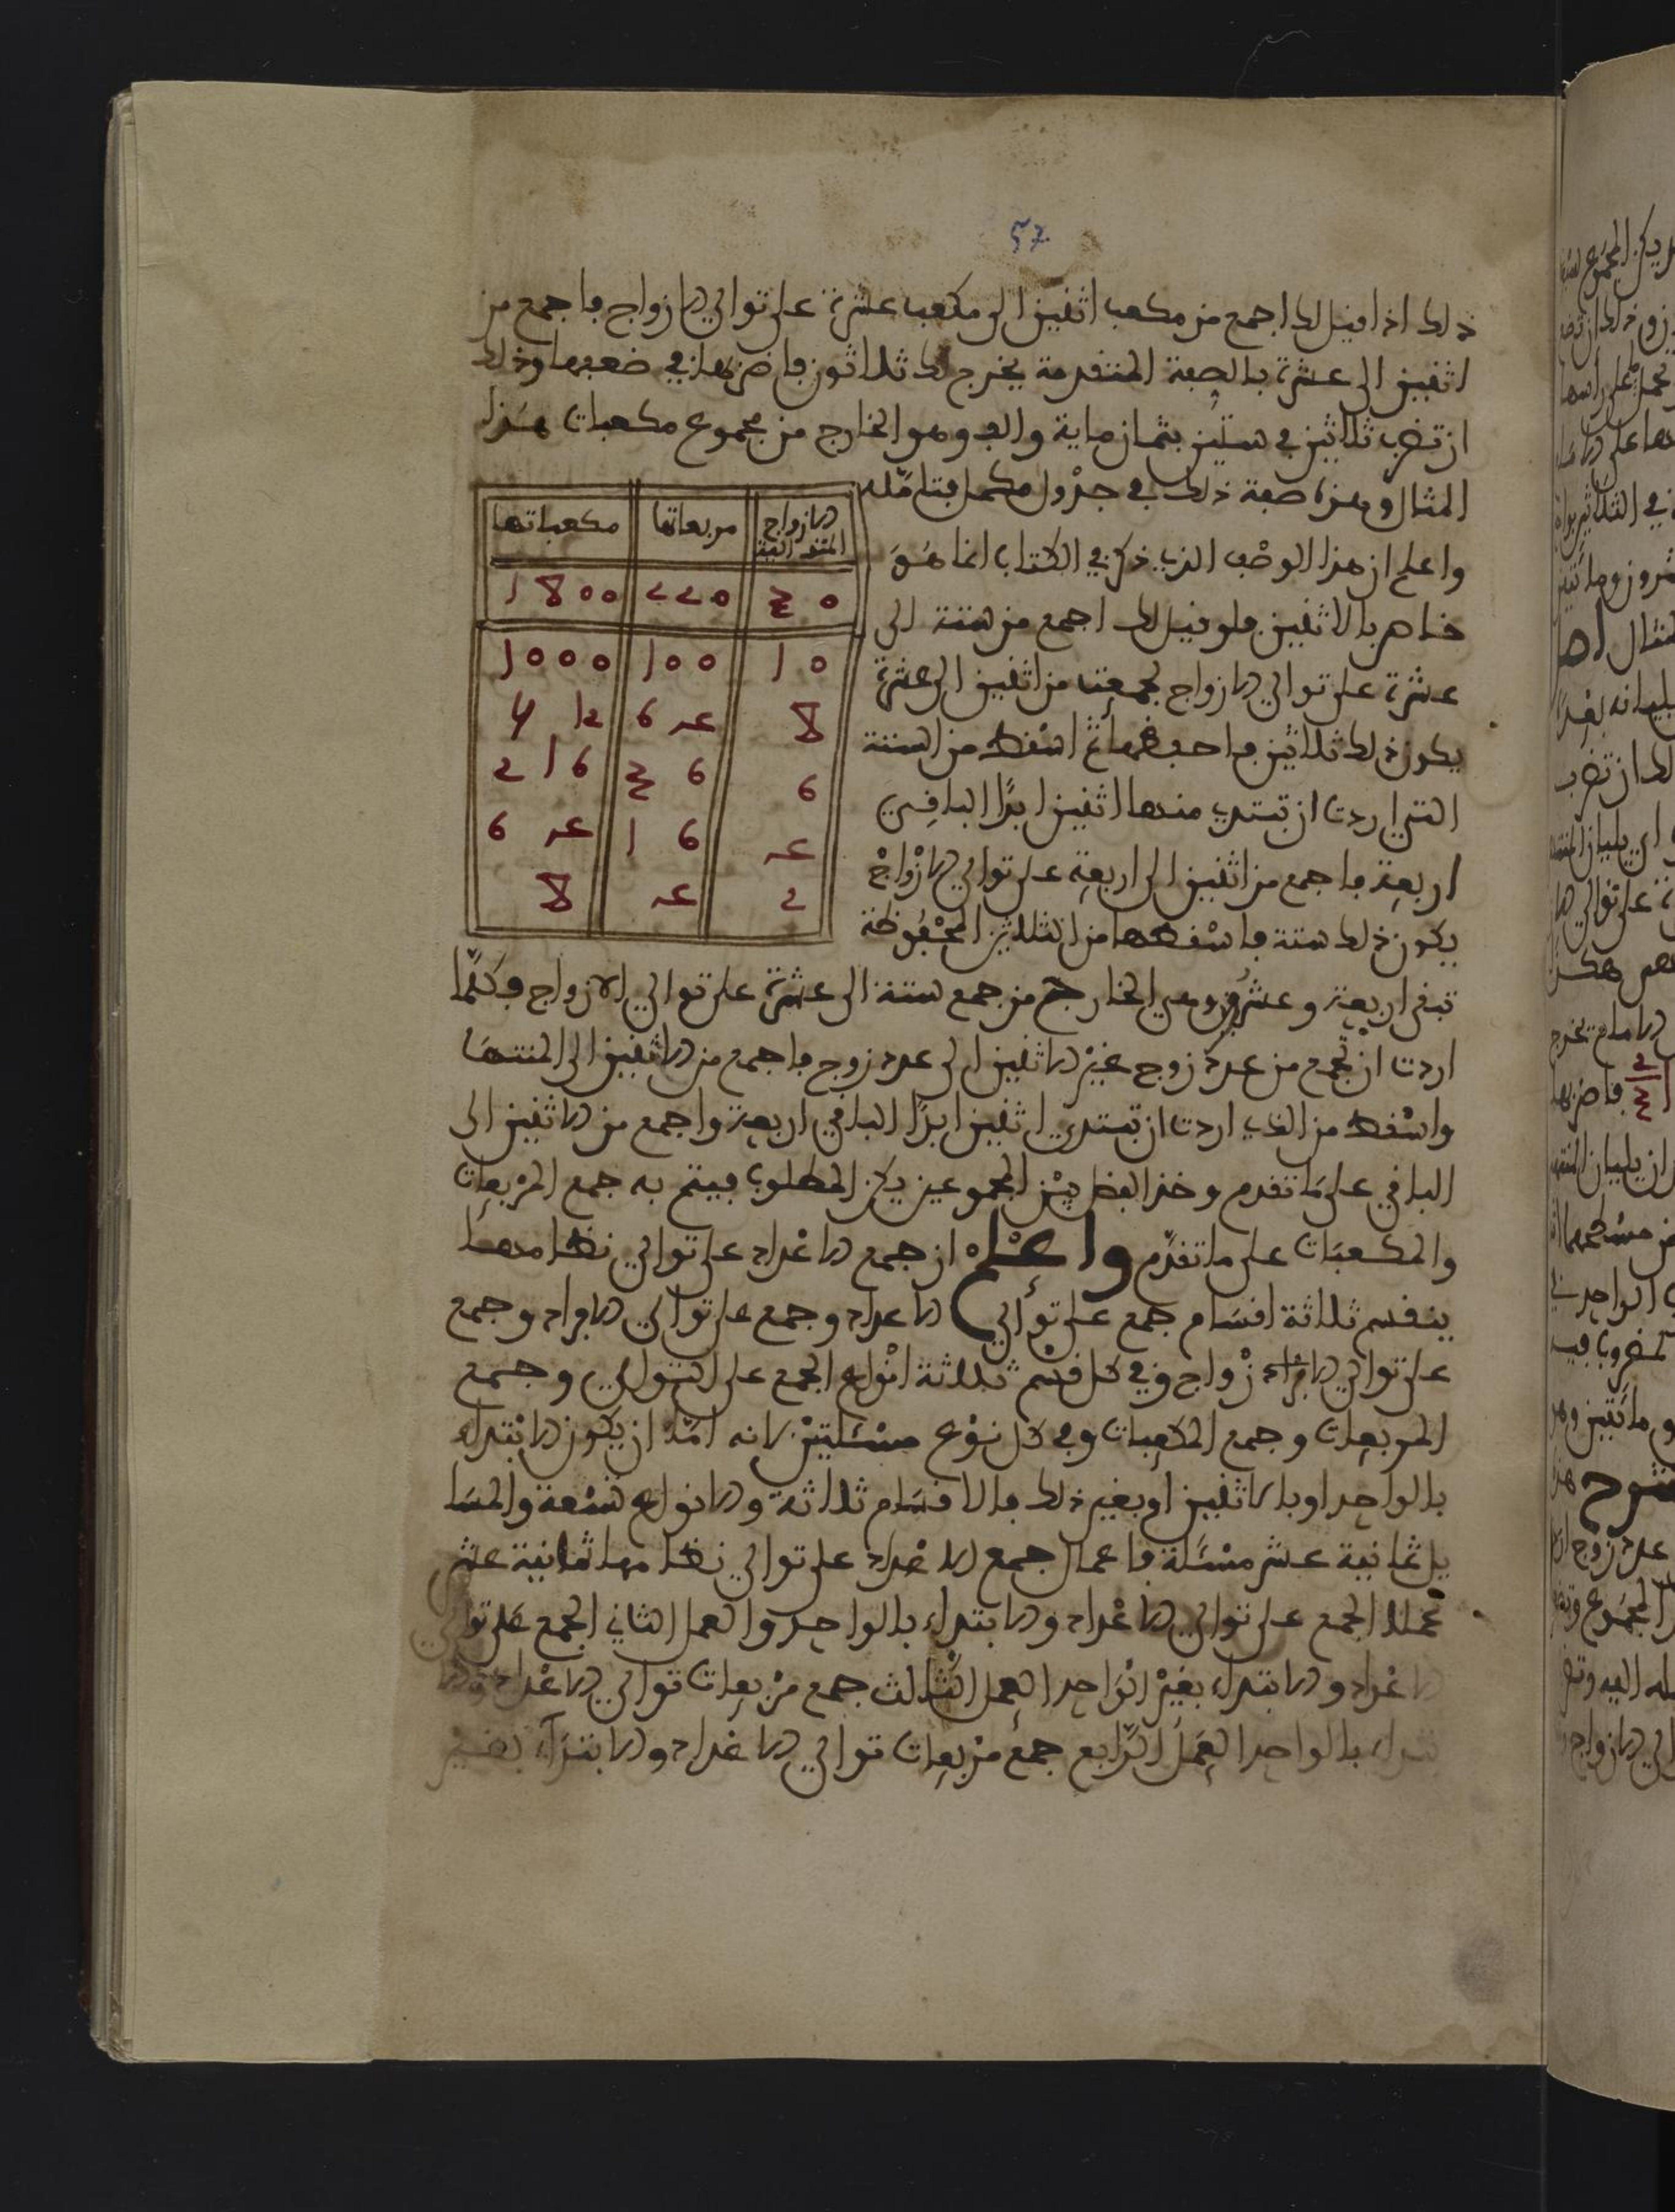 57
ذلك اذا قيل لك اجمع من مكعب اثنين الى مكعب عشرة على توالي الازواج فاجمع من
اثنين الى عشرة بالصفة المتقدمة يخرج لك ثلاثون فاضربها في ضعفها وذلك
ان تضرب ثلاثين في ستين بثمان ماية والف وهو الخارج من مجموع مكعبات هذا
المثال وهذه صفة ذلك في جدول مكمل فتامّله
واعلم ان هذا الوصف الذي ذكر في الكتاب انما هُوَ
خاص بالاثنين فلو قيل لك اجمع من ستة الى
عشرة على توالي الازواج لجمعت من اثنين الى عشرة
يكون ذلك ثلاثين فاحفظها ثم اسْقط من الستة
التي اردت ان تبتدي منها اثنين ابدًا الباقِي
اربعة فاجمع من اثنين الى اربعة على توالي الازْواجْ
يكون ذلك ستة فاسْقطها من الثلاثين المحْفُوظة
تبقى اربعة وعشرون وهي الخارج من جمع ستة الى عشرة على توالي الازواج وكلّما
اردت انْ تجمع من عدد زوج غيْر الاثنين الى عدد زوج فاجمع من الاثنين الى المنتهَا
واسْقط من الذي اردت ان تبتدي اثنين ابدًا الباقي اربعة واجمع من الاثنين الى
الباقي على مَا تقدم وخذ الفضل بيْن المجموعين يكن المطلوب فيتم به جمع المرْبعات
والمكعبَات على ما تقدّم واعْلم ان جمع الاعْداد على توالي نظامها
ينقسم ثلاثة اقسَام جمع على توالي الاعداد وجمع على توالي الافراد وجمع
على توالي الازْواج وفي كل قسْم ثلاثة انْواع الجمع على التوالي وجمع
المربعات وجمع المكعبات وفي كل نوْع مسْئلتيْن لانه امّا ان يكون الابْتداء
بالواحد او بالاثنين او بغير ذلك فالاقسَام ثلاثة والانواع تسْعة والمسَا
يل ثمانية عشر مسْئلة فاعمال جمع الاعْداد على توالي نظامها ثمانية عشر
عْملا الجمع على توالي الاعْداد والابتداء بالواحد والعمل الثاني الجمع على توالي
الاعْداد والابتداء بغيْر الوَاحد العمل الثّالث جمع مرْبعات توالي الاعْداد والا
بتداء بالواحد العمَل الرّابع جمع مرْبعات توالي الاعْداد والابتدَاء بغيْر
الازواج المتوالية | مربعاتها | مكعباتها
30 | 220 | 1800
10 | 100 | 1000
8 | 64 | 512
6 | 36 | 216
4 | 16 | 64
2 | 4 | 8